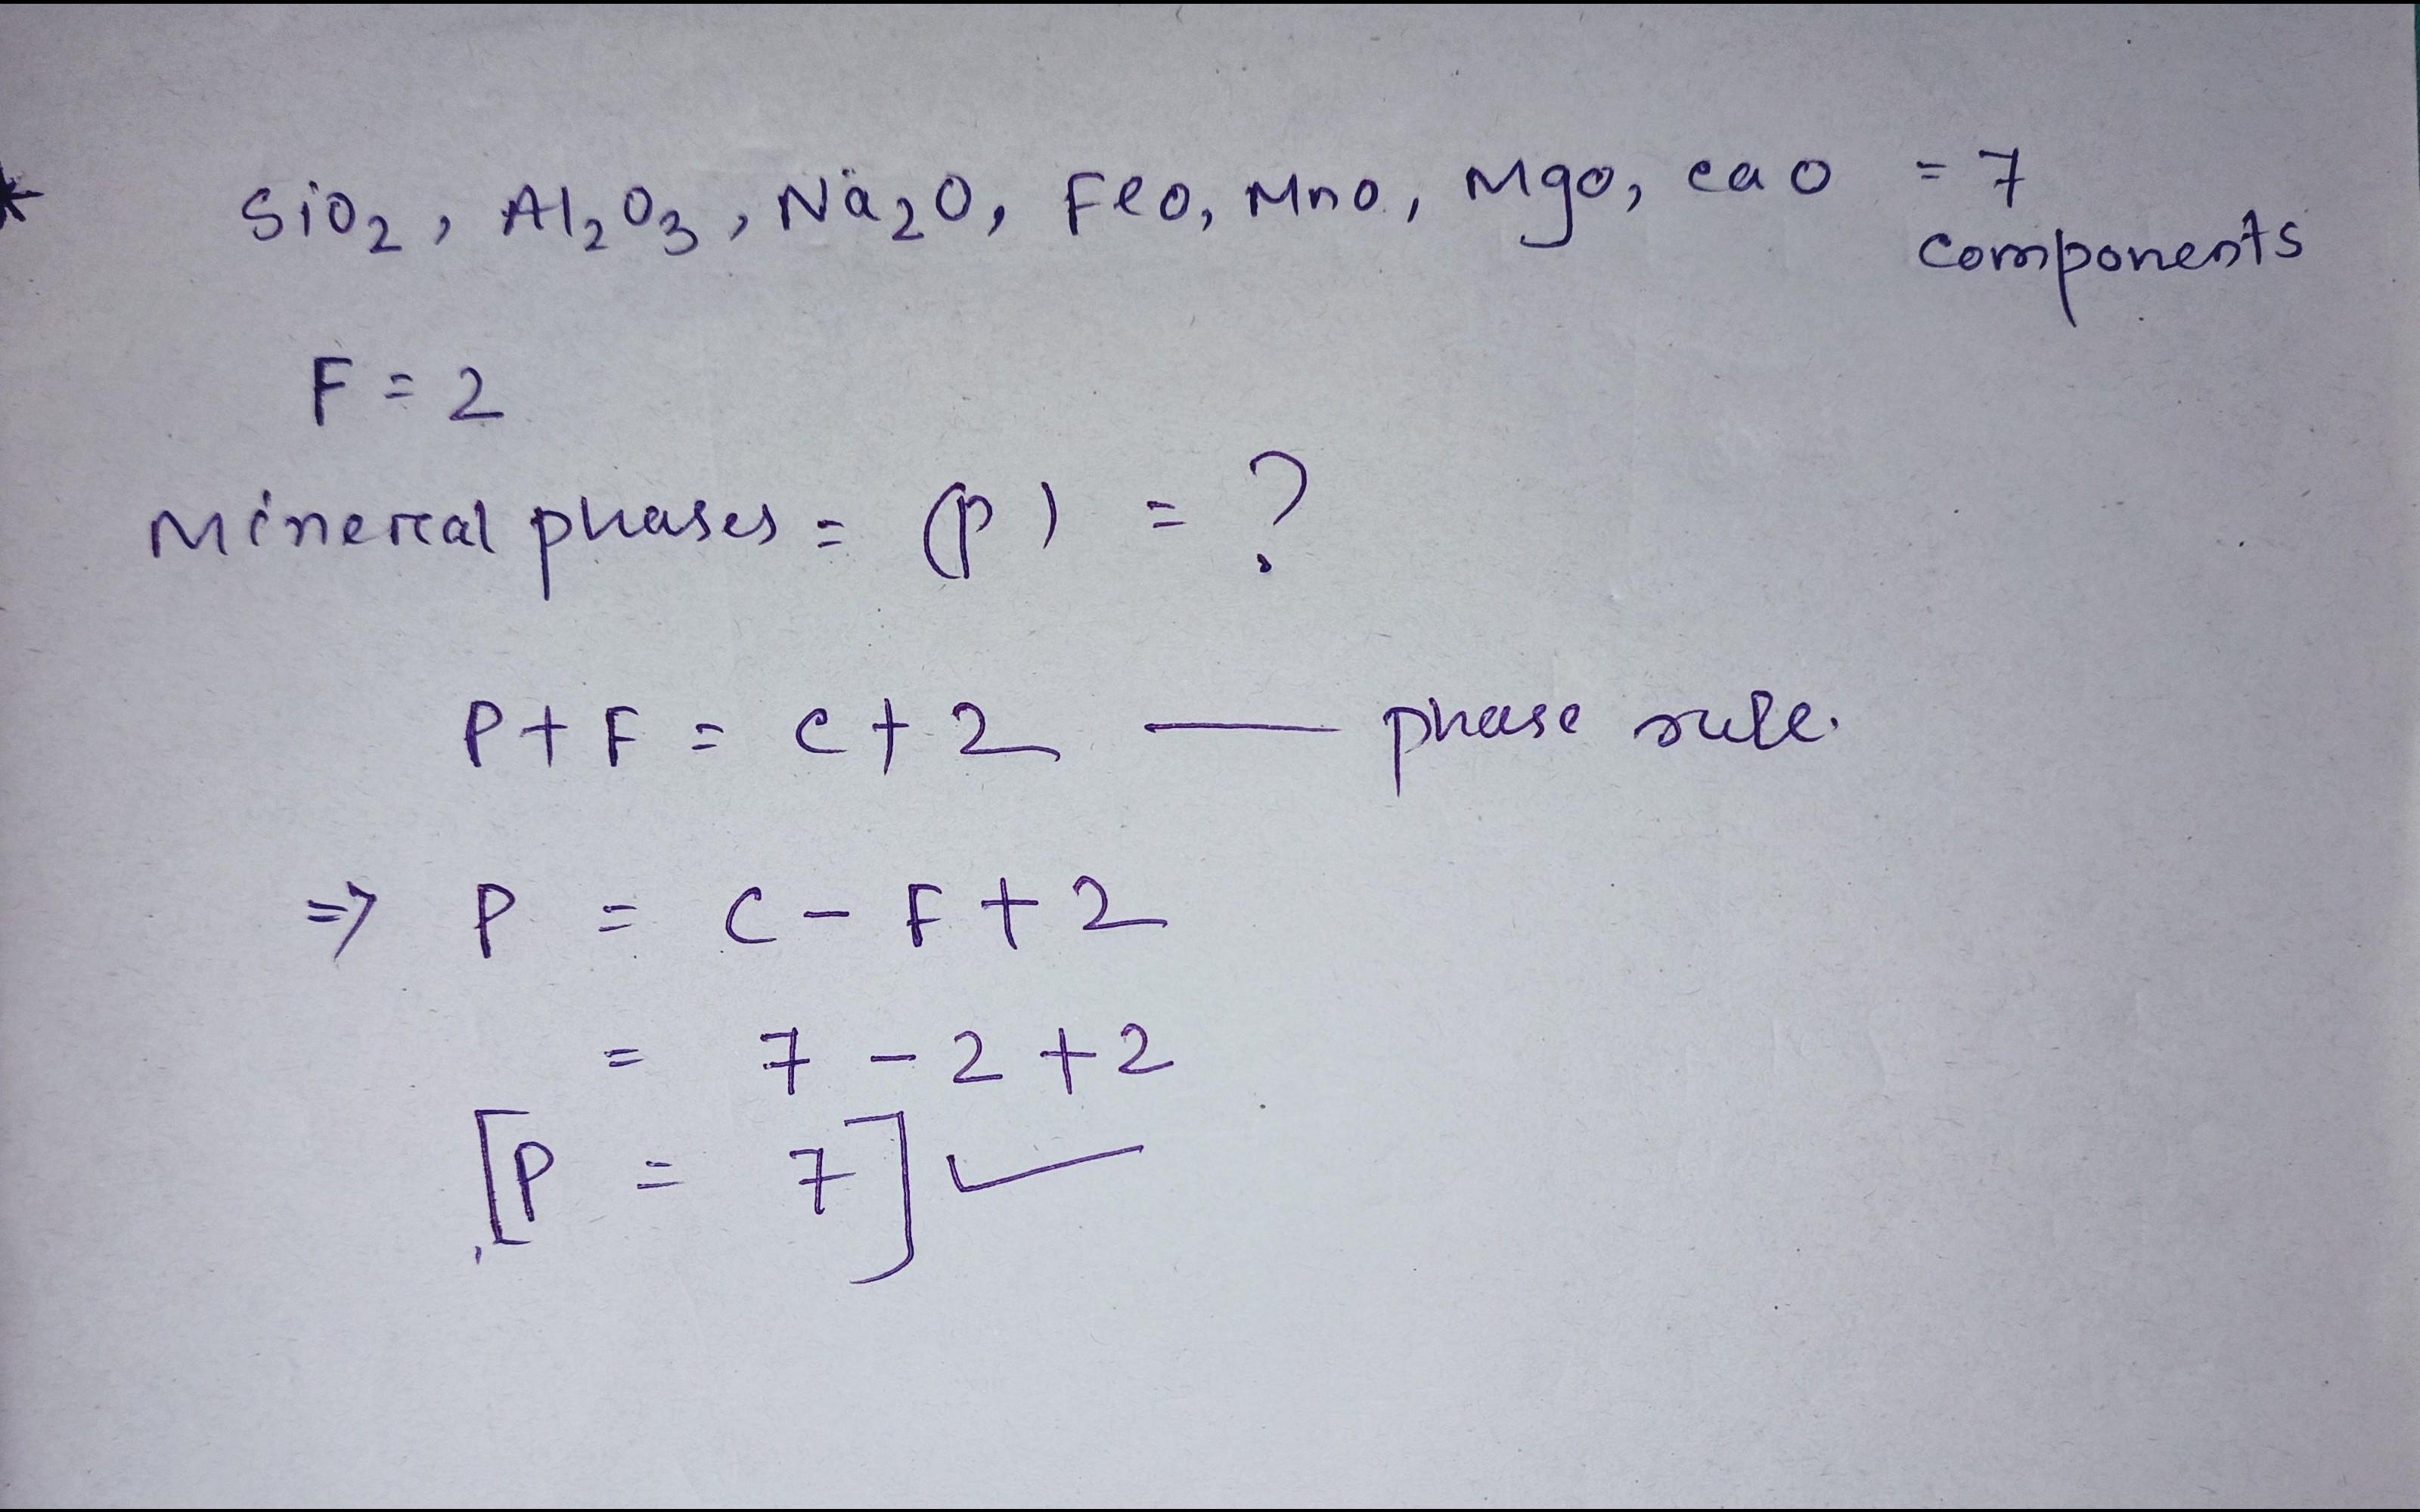 * SiO₂, Al₂O₃, Na₂O, FeO, MnO, MgO, CaO = 7
components
F = 2
Mineral phases = (P) = ?
P + F = C + 2 — phase rule.
⇒ P = C - F + 2
= 7 - 2 + 2
[P = 7] ✓